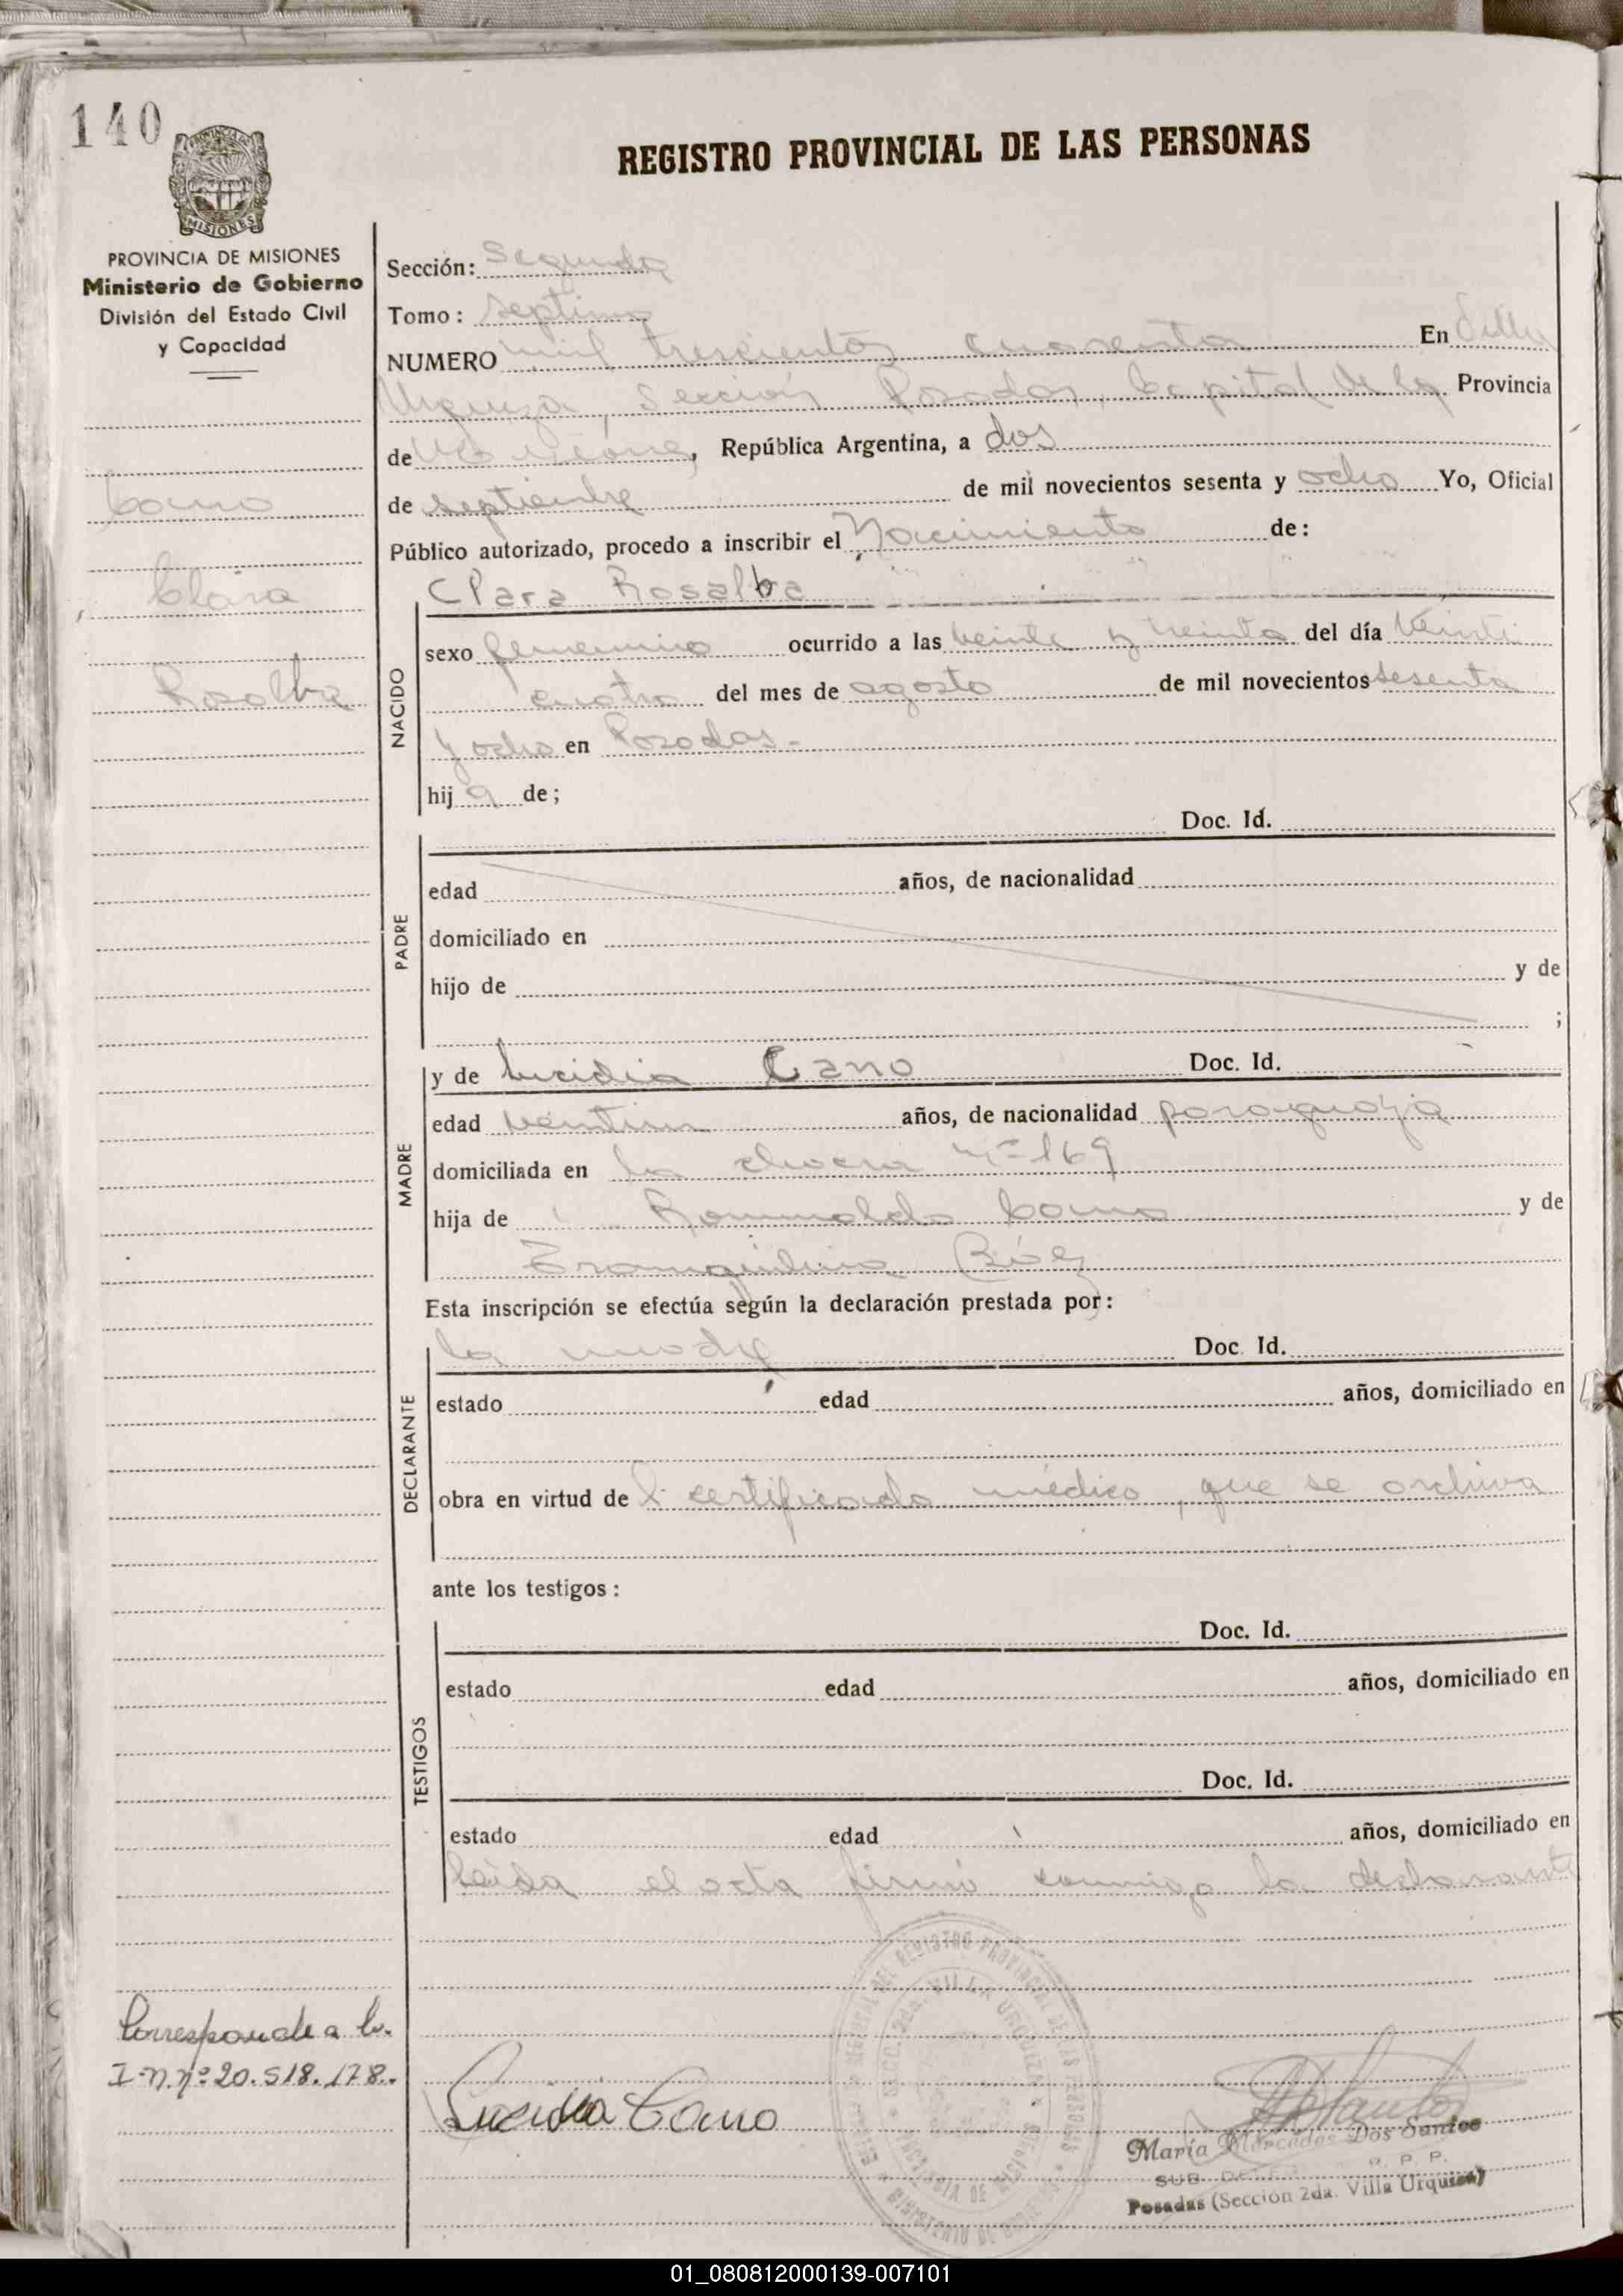 140
REGISTRO PROVINCIAL DE LAS PERSONAS
PROVINCIA DE MISIONES
Ministerio de Gobierno
División del Estado Civil
y Capacidad
Cano
Clara
Rosalba
Sección: Segunda
Tomo: septimo
NUMERO mil trescientos cuarenta En Villa
Urquiza, Sección Posadas, Capital de la Provincia
de Misiones, República Argentina, a dos
de septiembre de mil novecientos sesenta y ocho Yo, Oficial
Público autorizado, procedo a inscribir el Nacimiento de:
Clara Rosalba
NACIDO
sexo femenino ocurrido a las veinte y treinta del día veinti
cuatro del mes de agosto de mil novecientos sesenta
y ocho en Posadas.-
hija de;
PADRE
Doc. Id.
edad años, de nacionalidad
domiciliado en
hijo de y de
;
MADRE
y de Lucidia Cano Doc. Id.
edad veintiun años, de nacionalidad paraguaya
domiciliada en la chacra Nº 169
hija de Romualdo Cano y de
Tranquilina Báez
Esta inscripción se efectúa según la declaración prestada por:
DECLARANTE
la madre Doc. Id.
estado edad años, domiciliado en
obra en virtud del certificado médico, que se archiva
ante los testigos:
TESTIGOS
Doc. Id.
estado edad años, domiciliado en
Doc. Id.
estado edad años, domiciliado en
Leída el acta firmó conmigo la declarante
Corresponde a la
I.N.Nº 20.518.178.
Lucidia Cano
María Mercedes Dos Santos
SUB. R. P. P.
Posadas (Sección 2da. Villa Urquiza)
01_080812000139-007101